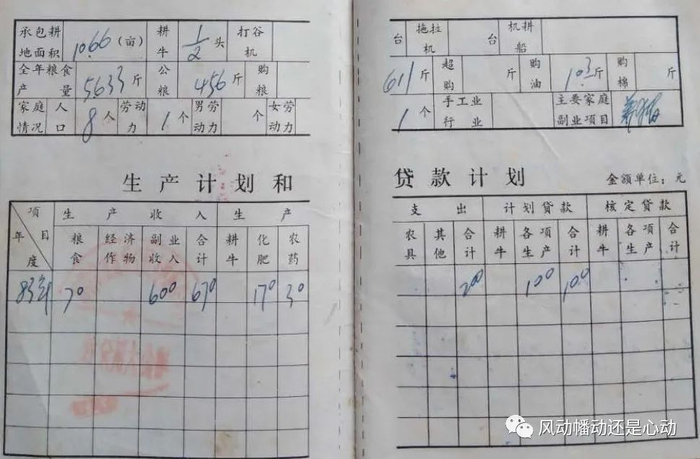 承包耕地面积 10.66 (亩) 耕牛 1/2 头 打谷机 台 拖拉机 台 机耕船
全年粮食产量 5633 斤 公粮 456 斤 购粮 611 斤 超购 斤 购油 103 斤 购棉 斤
家庭情况 人口 8 人 劳动力 1 个 男劳动力 个 女劳动力 1 个 手工业行业 主要家庭副业项目 养猪
生产计划和贷款计划 金额单位:元
项目 年度 生产收入 生产支出 计划贷款 核定贷款
粮食 经济作物 副业收入 合计 耕牛 化肥 农药 农具 其他 合计 耕牛 各项生产 合计 耕牛 各项生产 合计
83年 70 600 670 170 30 200 100 100
风动幡动还是心动